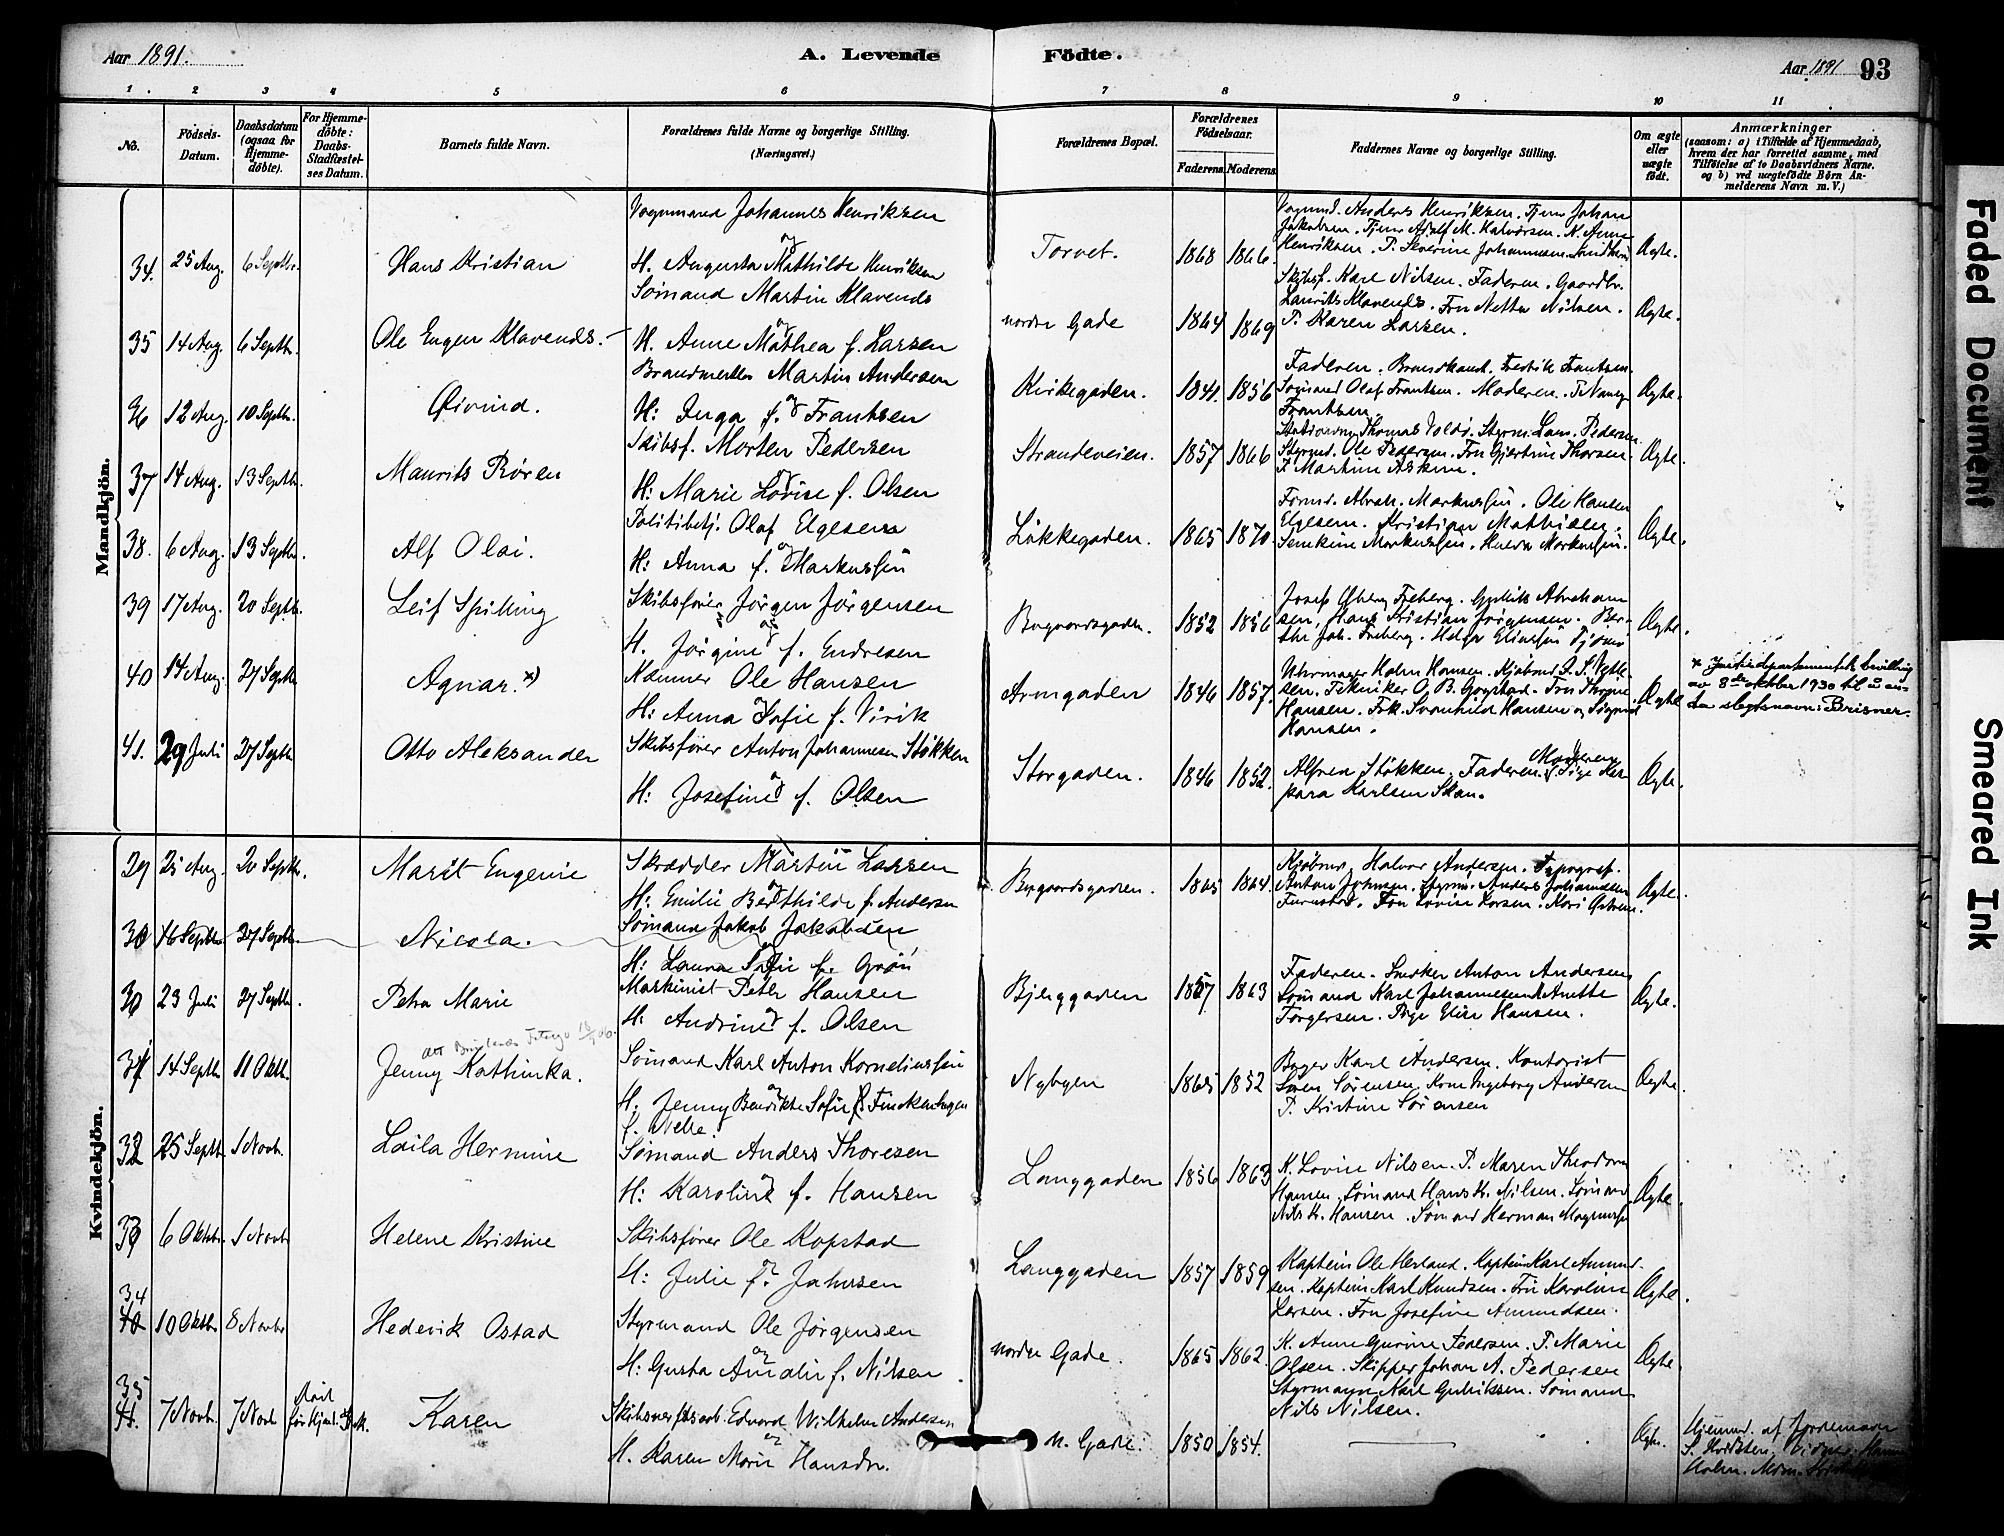 Aar 1891.
A. Levende Födte.
Aar 1891 93
1. 2 3 4 5 6 7 8 9 10 11
No.
Födsels-
Datum.
Daabsdatum
(ogsaa for
Hjemme-
döbte).
For Hjemme-
döbte:
Daabs-
Stadfæstel-
ses Datum.
Barnets fulde Navn.
Forældrenes fulde Navne og borgerlige Stilling.
(Næringsvei.)
Forældrenes Bopæl.
Forældrenes
Födselsaar.
Faderens Moderens
Faddernes Navne og borgerlige Stilling.
Om ægte
eller
uægte
födt.
Anmærkninger
(saasom: a) i Tilfælde af Hjemmedaab,
hvem der har forrettet samme, med
Tilföielse af to Daabsvidners Navne.
og b) ved uægtefödte Börn An-
melderens Navn m. V.)
Mandkjön.
34. 25 Aug. 6 Septbr. Hans Kristian
Vognmand Johannes Henriksen
og
H. Augusta Mathilde Henriksen
Torvet. 1868 1866.
Vognmd. Anders Henriksen. Tjener Johan
Jakobsen. Tjener Adolf M. Halvorsen. K. Anne
Henriksen. P. Severine Johannesen
Ægte.
35 14 Aug. 6 Septb. Ole Eugen Klavenes.
Sömand Martin Klavenes
og
H. Anne Mathea f. Larsen
nordre Gade 1864 1869
Skibsf. Karl Nilsen. Faderen. Gaardbr.
Laurits Klavenes. Fru Netta Nilsen.
P. Karen Larsen.
Ægte.
36 12 Aug. 10 Septb. Öivind.
Brandmester Martin Andersen
og
H: Inga f. Frantsen
Kirkegaden. 1841. 1856
Faderen. Fredrik Frantsen.
Sömand Olaf Frantsen. Moderen. P. Nancy
Frantsen.
Ægte.
37 14 Aug. 13 Septb. Maurits Rören
Skibsf. Morten Pedersen
og
H: Marie Lovise f. Olsen
Strandveien. 1857 1866
Thomas Styrm. Lars Pedersen
Styrmd. Ole Pedersen. Fru Gjertine Thorsen.
P. Martine
Ægte.
38. 6 Aug. 13 Septb. Alf Olai.
Politibetj. Olaf Elgesem
og
H: Anna f. Markussen
Lökkegaden. 1865 1870
Abrah. Markussen. Ole Hansen
Elgesem. Kristian Mathisen.
Markussen. Hulda Markussen.
Ægte.
39 17 Aug. 20 Septb. Leif Spilling
Skibsförer Jörgen Jörgensen
og
H. Jörgine f. Endresen
Bugaardsgaden. 1852 1856
Josef Freberg. Abraham
sen, Hans Kristian Jörgensen. Ber-
the Joh. Freberg. Helga
Ægte.
40 14 Aug. 27 Septb. Agnar. x)
Kæmner Ole Hansen
og
H: Anna Sofie f. Virik
Armgaden 1846 1857.
Uhrmager Holm Hansen. Kjöbmd.
sen. Tekniker O. B. Gogstad. Fru Thorine
Hansen. Frk. Svanhild Hansen og
Hansen.
Ægte
x Justisdepartementets bevilling
av 8de oktober 1930 til å an-
ta slegtsnavn: Brisner.
41. 29 Juli 27 Septb. Otto Aleksander
Skibsförer Anton Johannesen Stökken
og
H: Josefine f. Olsen
Storgaden. 1846 1852.
Moderen
Alfred Stökken. Faderen. Pige Kas-
para Karlsen Skau.
Ægte.
Kvindekjön.
29 25 Aug. 20 Septb. Marit Eugenie
Skrædder Martin Larsen
og
H: Emilie Berthilde f. Andersen
Bugaardsgaden. 1865 1864.
Kjöbmd. Halvor Andersen. Typograf.
Anton Johnsen. Styrm. Anders Johannesen
Furustad. Fru Lovise Korsen. Kari
Ægte.
30 16 Septb. 27 Septb. Nicola.
Sömand Jakob Jakobsen
H: Laura Sofie f. Grön
30 23 Juli 27 Septb. Petra Marie
Maskinist Peter Hansen
og
H: Andrine f. Olsen
Bjerggaden 1857 1863
Faderen. Snedker Anton Andersen
Sömand Karl Johannesen. Anette
Torgersen. Pige Elise Hansen.
Ægte.
31 14 Septb. 11 Oktb. Jenny Kathinka.
Sömand Karl Anton Korneliussen
og
H. Jenny Bendikte Sofie Finckenhagen
f. Nelle.
Nybyen 1865 1852
Bager Karl Andersen. Kontorist
Sören Sörensen. Kone Ingeborg Andersen
P. Kristine Sörensen
Ægte.
32 25 Septb. 1 Novb. Laila Hermine
Sömand Anders Thoresen
og
H: Karoline f. Hansen
Langgaden 1856 1863
K. Lovise Nilsen. P. Maren Theodora
Hansen. Sömand Hans K. Nilsen. Sömand
Nils K. Hansen. Sömand Herman Magnussen
Ægte.
33 6 Oktb. 1 Novb. Helene Kristine
Skibsförer Ole Kopstad
og
H: Julie f. Jahnsen
Langgaden 1857 1859
Kaptein Ole Herland. Kaptein Karl Amund-
sen. Kaptein Karl Knudsen. Fru Karoline
Larsen. Fru Josefine Amundsen.
Ægte.
34
40 10 Oktb. 8 Novbr Hedevik Ostad
Styrmand Ole Jörgensen
og
H: Gusta Amalie f. Nilsen.
nordre Gade. 1865 1862.
K. Anne Gurine Pedersen. P. Marie
Olsen. Skipper Johan A. Pedersen
Styrmann Karl Gulliksen. Sömand
Nils Nilsen.
Ægte.
35
41. 7 Novb. 7 Novb Död
för Stadf. Karen
Edvard Wilhelm Andersen
og
H. Karen Marie Hansdr.
n. Gade. 1850 1854.
Ægte.
Hjemmed. af Jordemoder
S.
Holm.
Faded Document
Smeared Ink